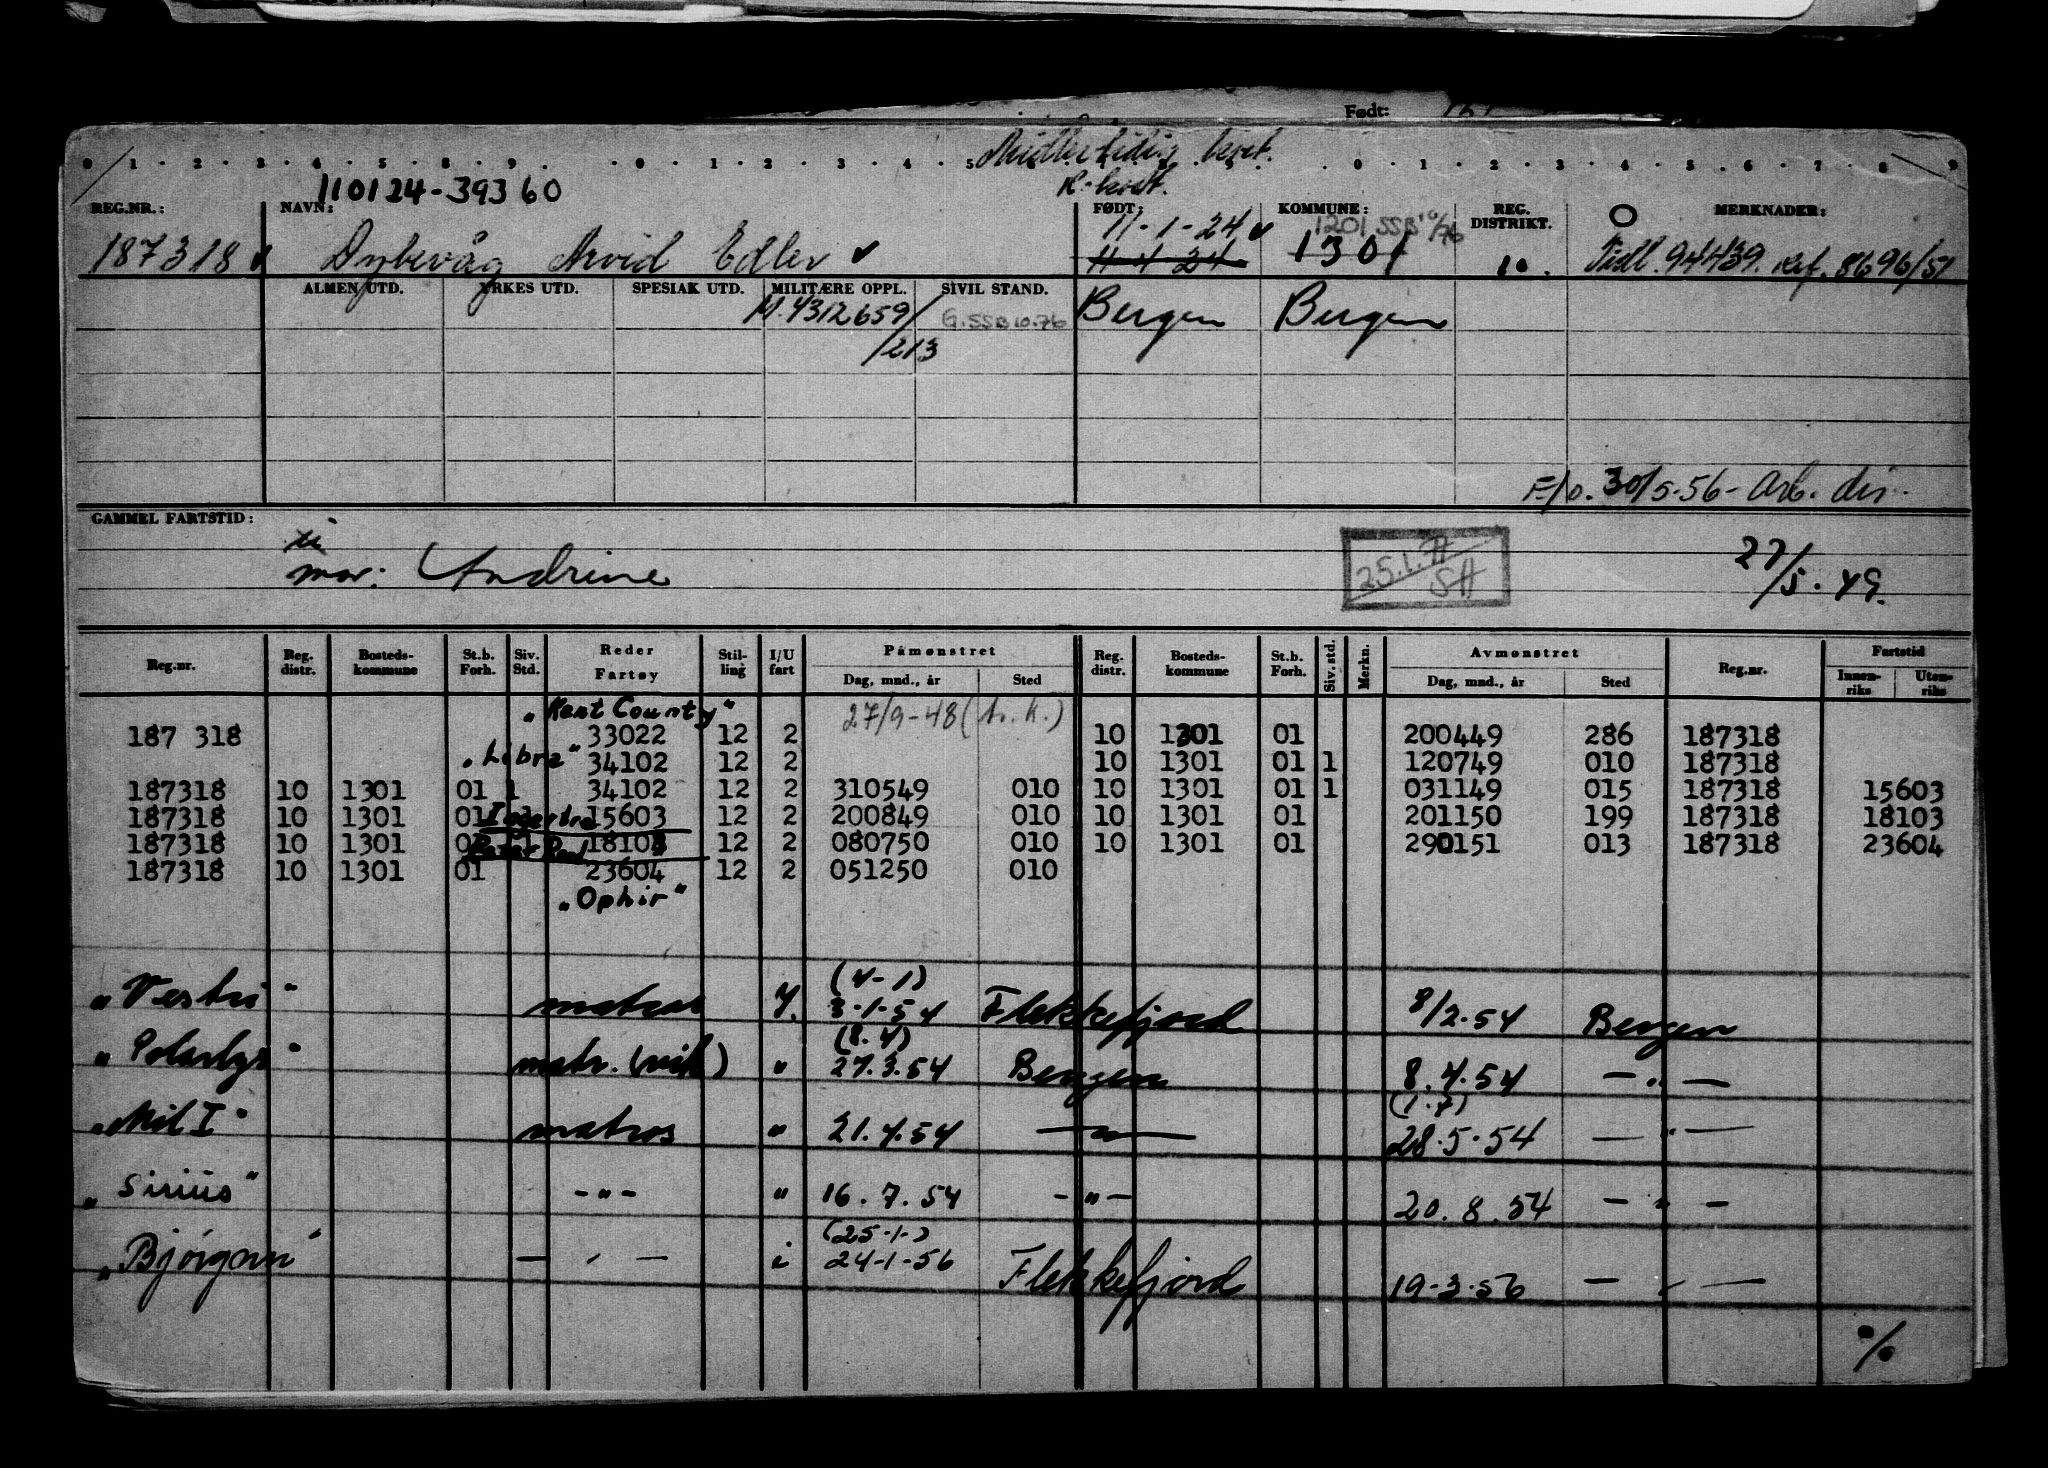 Født:
0 1 2 3 4 5 6 7 8 9 0 1 2 3 4 5 0 1 2 3 4 5 6 7 8 9
Midlertidig bevet.
110124-39360 K-bevet.
REG.NR.: NAVN: FØDT: KOMMUNE: REG. DISTRIKT. MERKNADER:
11-1-24 1201 SSB 10/76
187318 Dybevåg Arvid Edler 11 4 24 1301 10. Tidl. 94439. Ref. 8696/51
ALMEN UTD. YRKES UTD. SPESIAK UTD. MILITÆRE OPPL. SIVIL STAND.
M.4312659/213 G.SSB 10.76 Bergen Bergen
F/o. 30/5-56- Arb. dir.
GAMMEL FARTSTID:
mor: Andrine 25.1.77 SH 27/5.49.
Reg.nr. Reg. distr. Bosteds-kommune St.b. Forh. Siv. Std. Reder Fartøy Stil-ling I/U fart Påmønstret Dag, mnd., år Sted Reg. distr. Bosteds-kommune St.b. Forh. Siv. std. Merkn. Avmønstret Dag, mnd., år Sted Reg.nr. Fartstid Innen-riks Uten-riks
"Kent County" 27/9-48
187 318 33022 12 2 10 1301 01 200449 286 187318
"Libra" 34102 12 2 10 1301 01 1 120749 010 187318
187318 10 1301 01 1 34102 12 2 310549 010 10 1301 01 1 031149 015 187318 15603
187318 10 1301 01 15603 12 2 200849 010 10 1301 01 201150 199 187318 18103
187318 10 1301 01 18103 12 2 080750 010 10 1301 01 290151 013 187318 23604
187318 10 1301 01 23604 12 2 051250 010
"Ophir"
(4-1)
"Vestri" matros 3-1-54 Flekkefjord 8/2-54 Bergen
(8.4)
"Polarlys" matr. (vik) " 27.3.54 Bergen 8.4.54 — " —
(1.7)
"Mil I" matros " 21.4.54 — " — 28.5.54 — " —
"Sirius" - " - " 16.7.54 - " - 20.8.54 — " —
(25.1.)
"Bjørgvin" — " — i 24-1-56 Flekkefjord 19-3-56 — " —
%